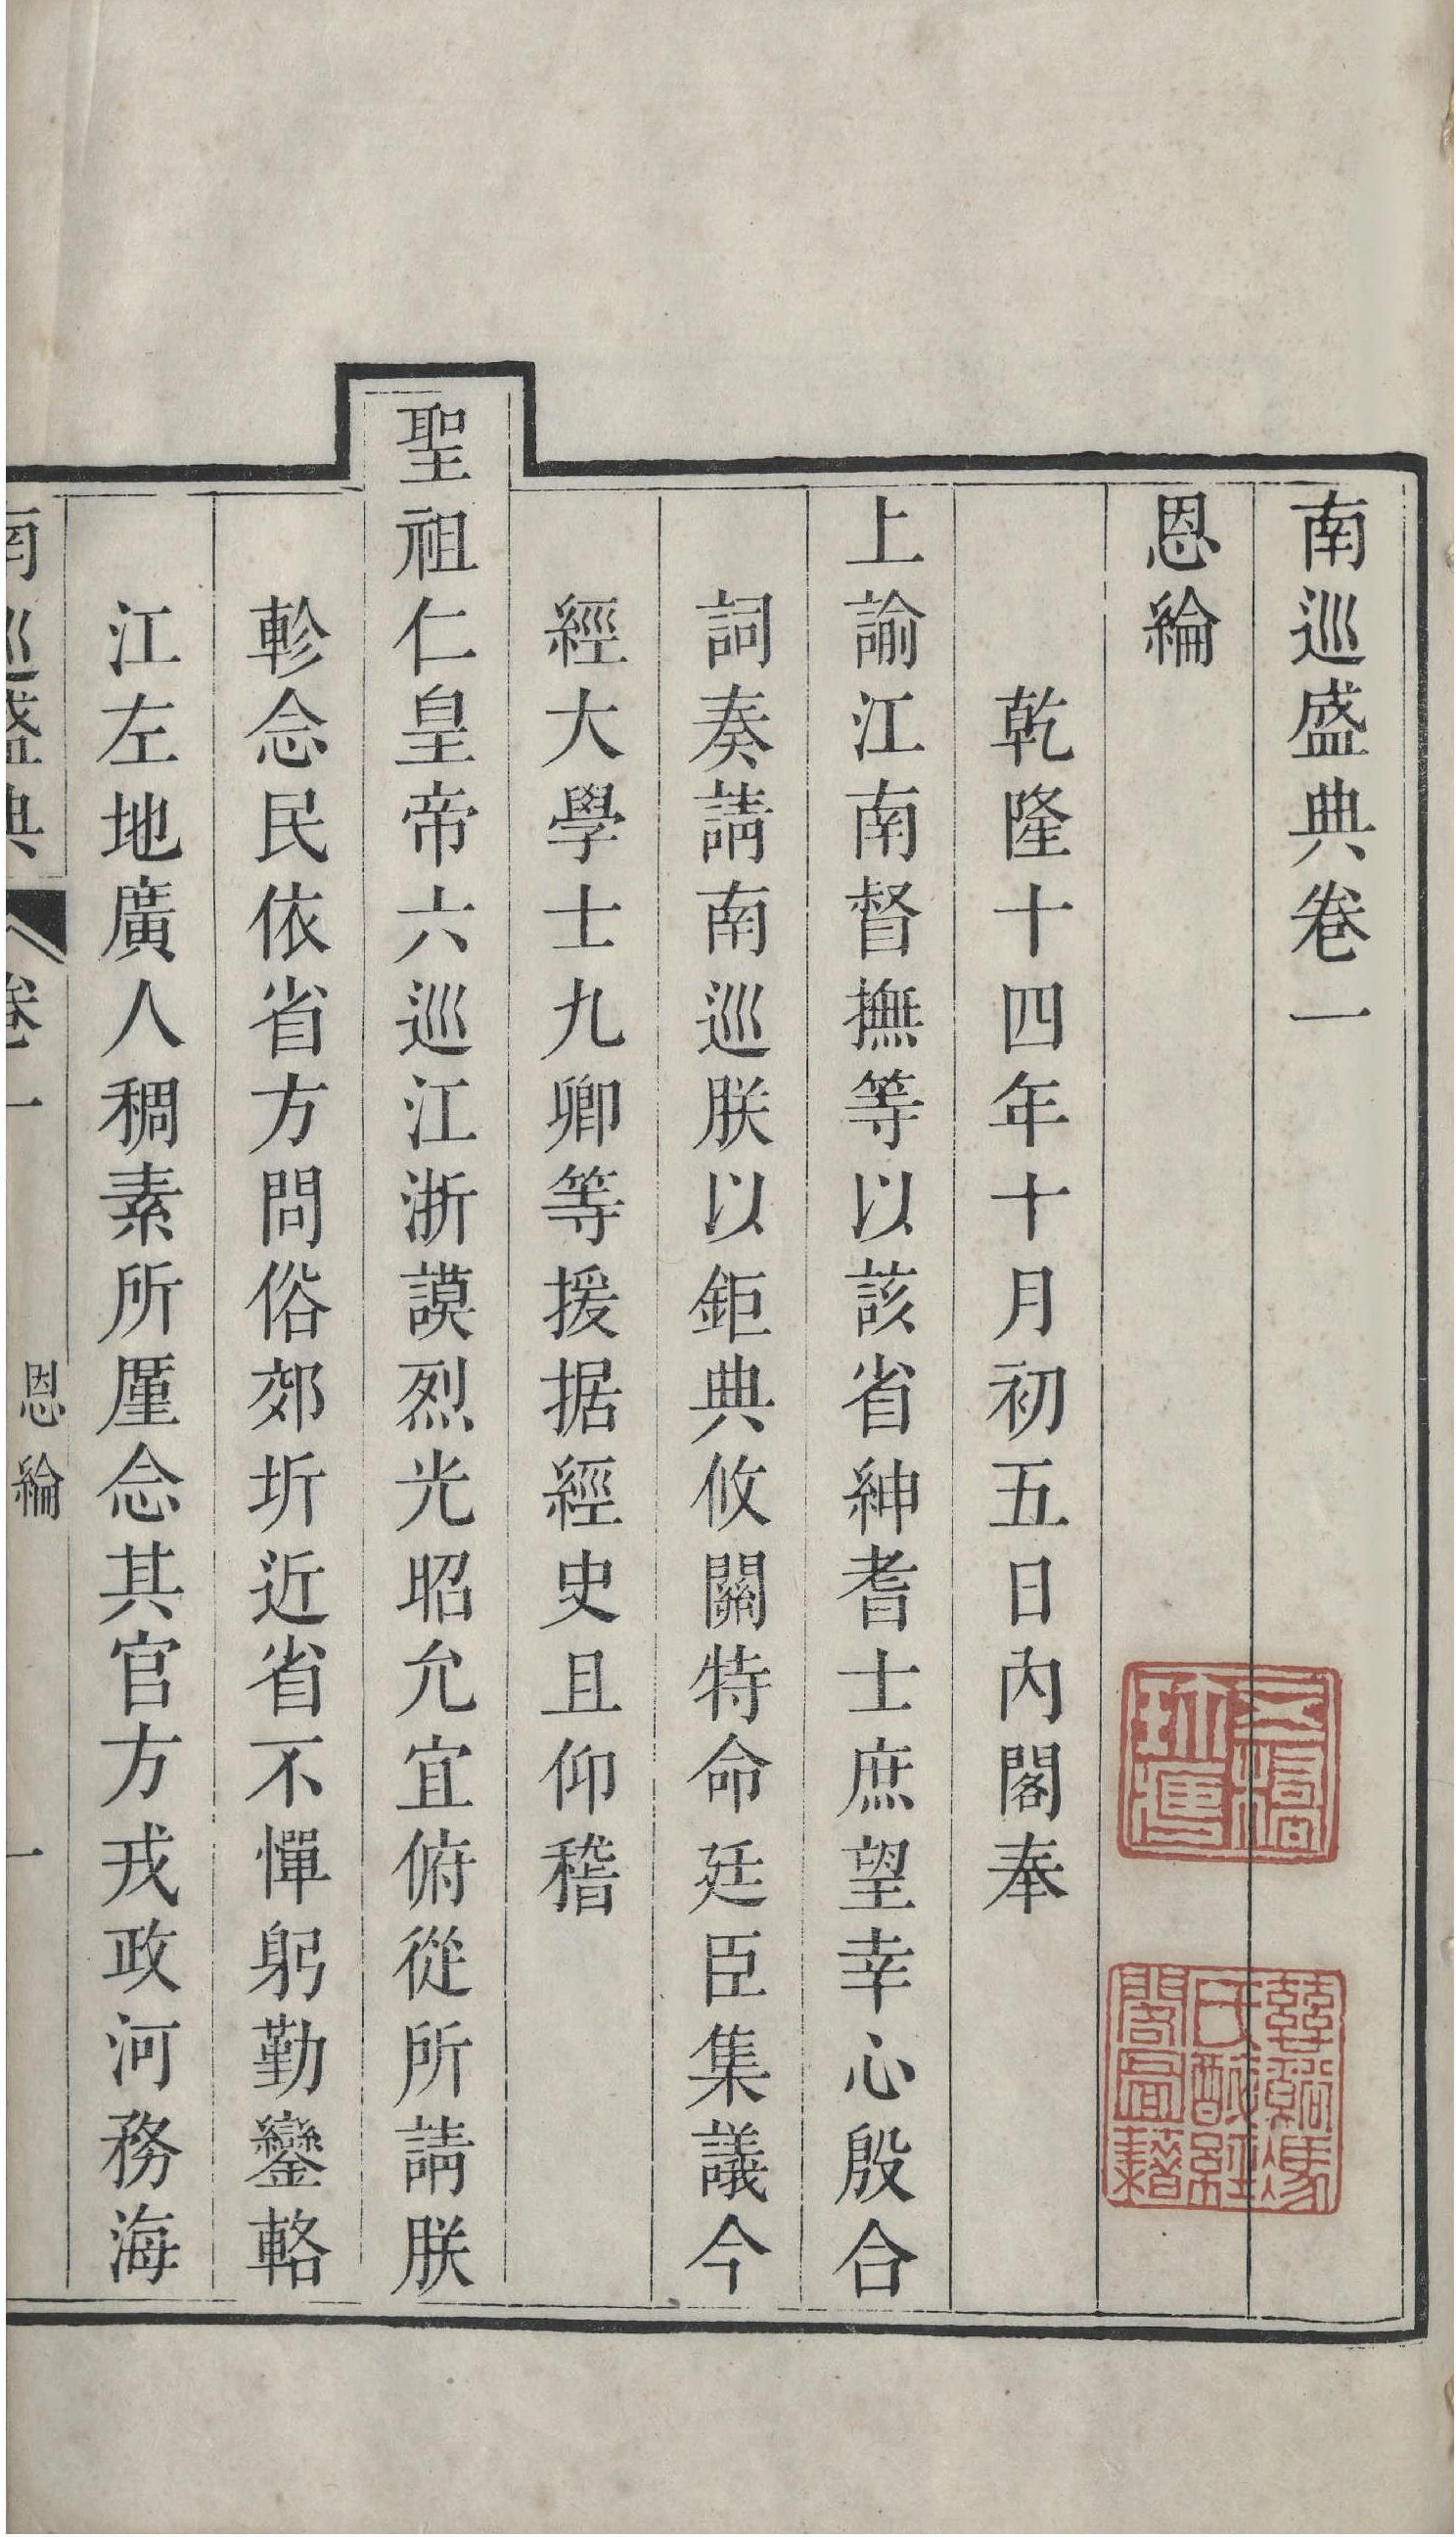 南巡盛典卷一
恩綸
乾隆十四年十月初五日內閣奉
上諭江南督撫等以該省紳耆士庶望幸心殷合
詞奏請南巡朕以鉅典攸關特命廷臣集議今
經大學士九卿等援据經史且仰稽
聖祖仁皇帝六巡江浙謨烈光昭允宜俯從所請朕
軫念民依省方問俗郊圻近省不憚躬勤鑾輅
江左地廣人稠素所廑念其官方戎政河務海
南巡盛典 卷一 恩綸 一